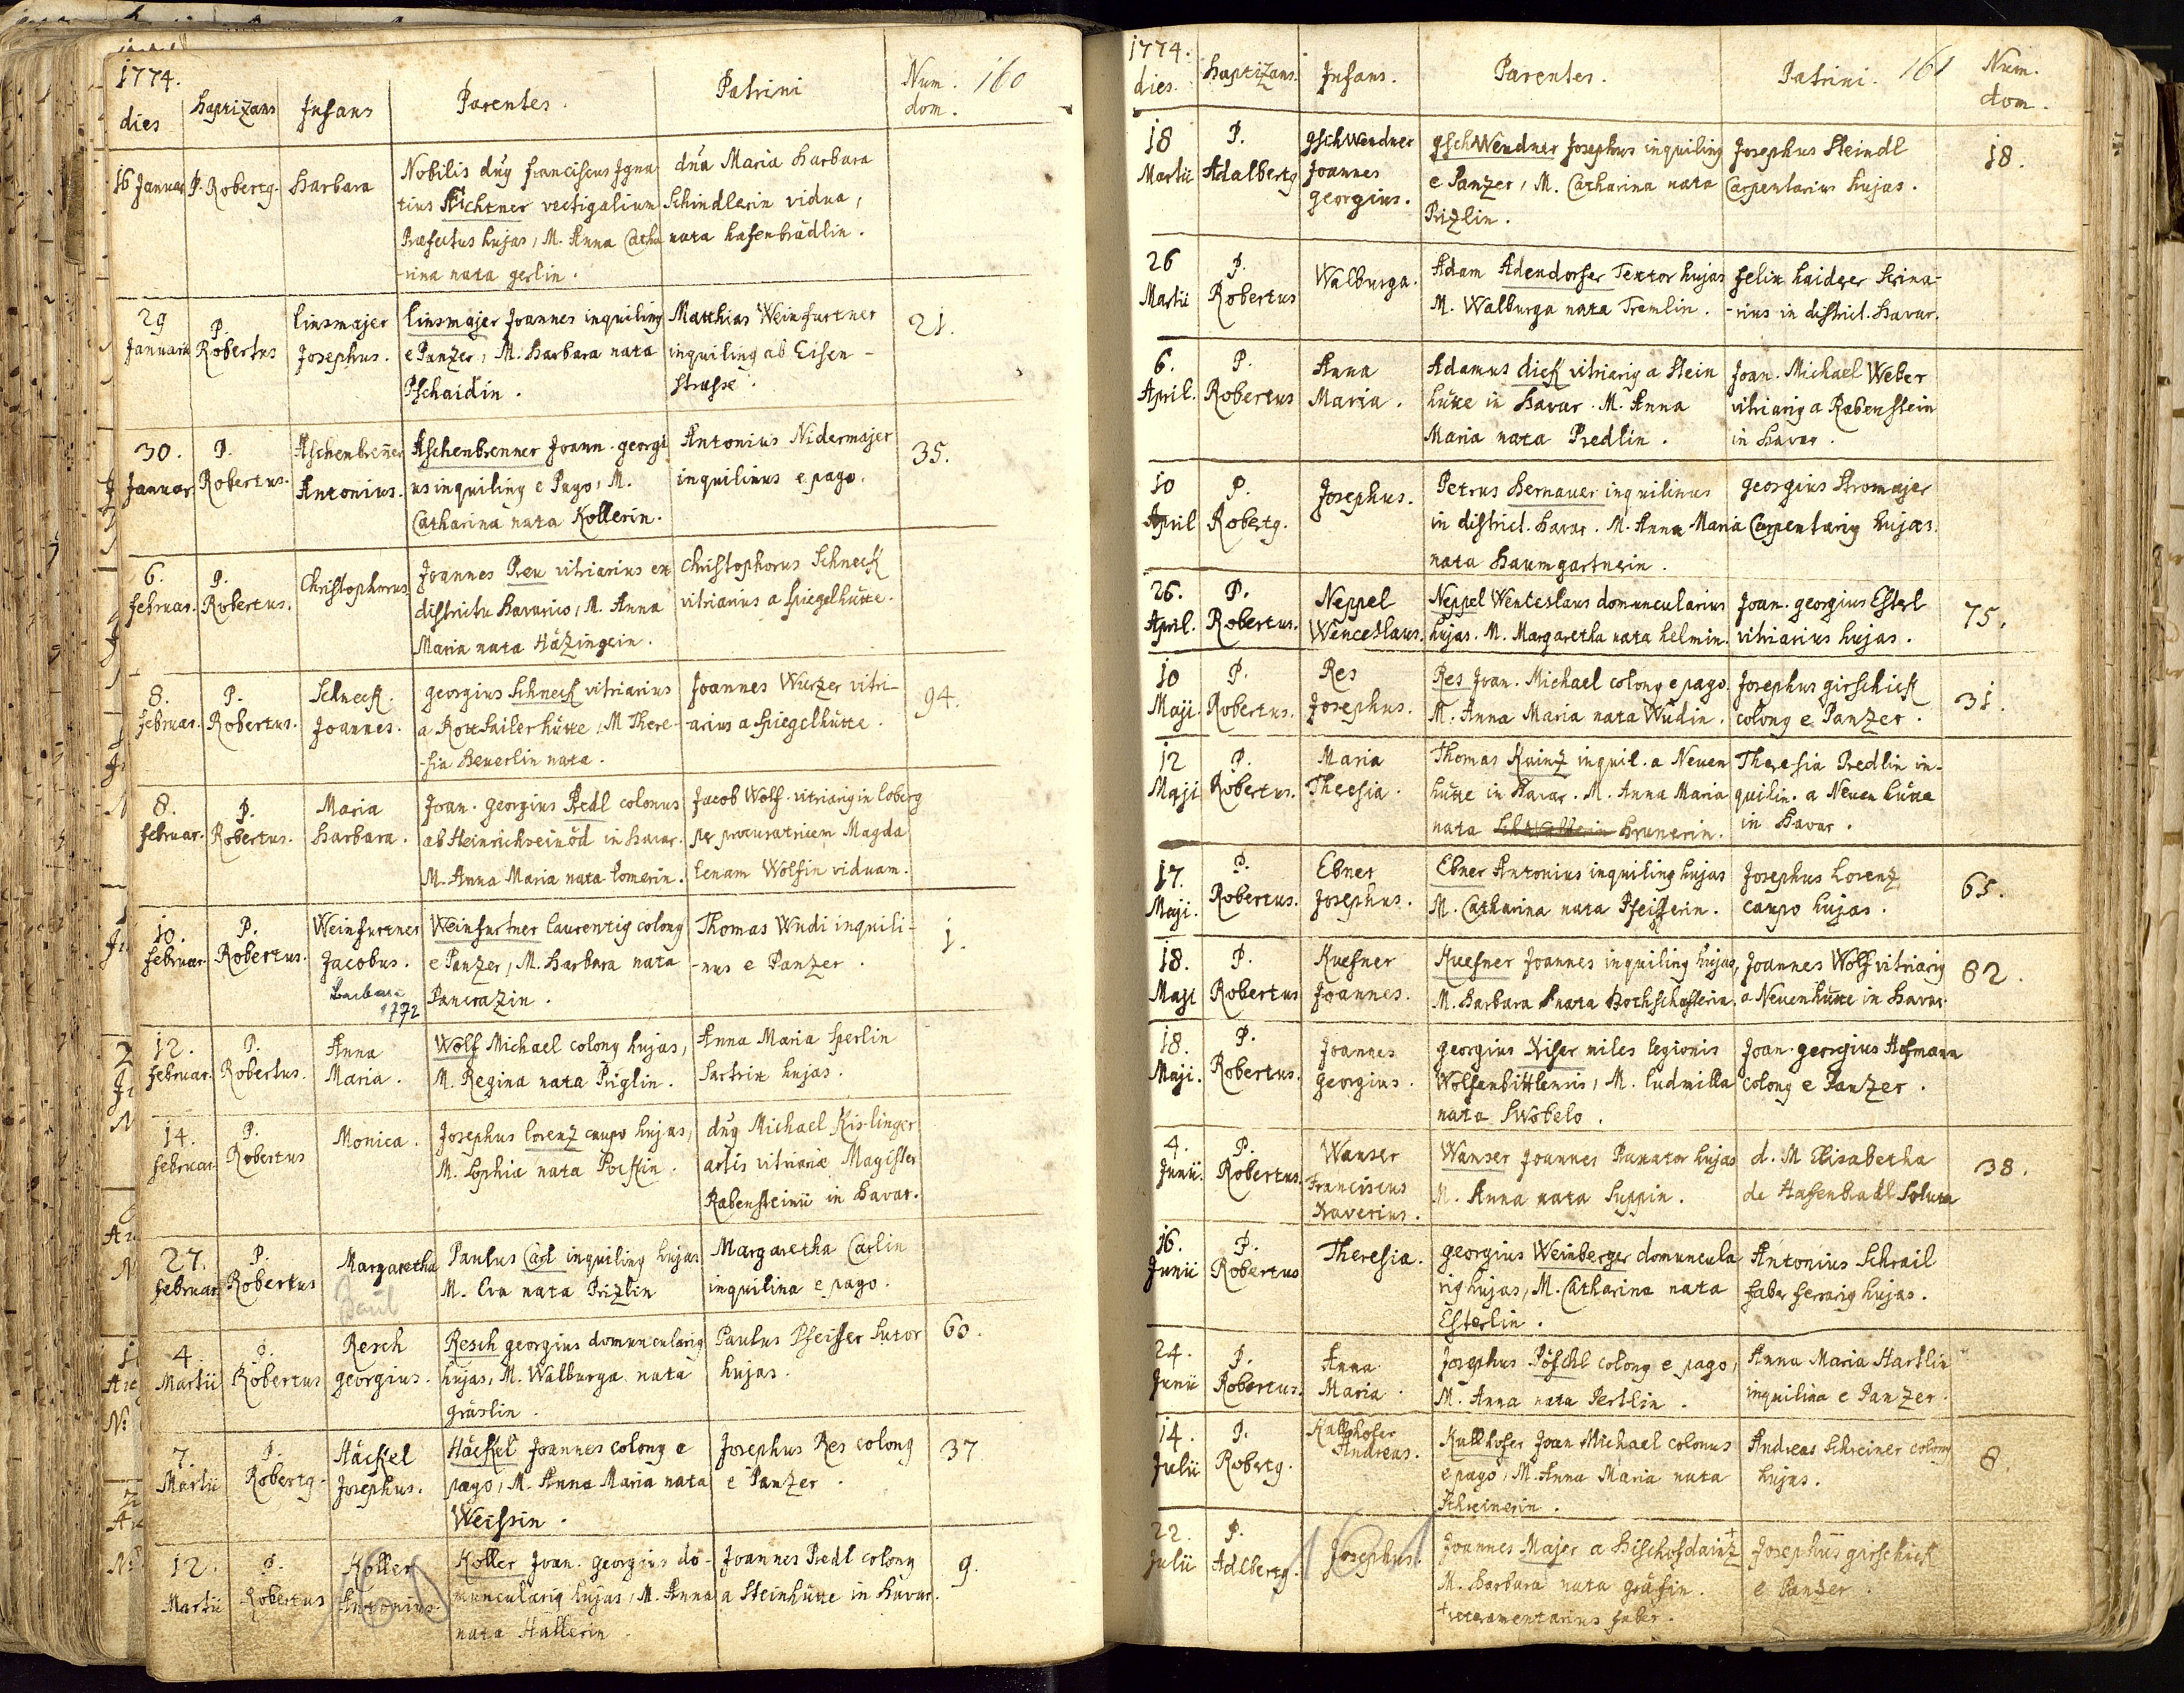 1774.
dies
baptizans
Infans
Parentes.
Patrini
Num. dom.
160
16 Januar
P. Robertg.
Barbara
Nobilis dñg Franciscus Igna-
tius Aichtner vectigalium
Præfectus hujas, M. Anna Catha
-rina nata gerlin.
dña Maria Barbara
Schindlerin vidua,
nata hafenbrädlin.
29
Januarii
P.
Robertus
Linsmajer
Josephus.
Linsmajer Joannes inquiling
e Panzer, M. Barbara nata
Pschaidin.
Matthias Weinfurtner
inquiling ab Eisen-
strasse.
21.
30.
Januar.
P.
Robertus.
Aschenbreñer
Antonius.
Aschenbrenner Joann. georgi
us inquiling e Pago, M.
Catharina nata Kollerin.
Antonius Nidermajer
inquilinus e pago.
35.
6.
februar.
P.
Robertus.
Christophorus
Joannes Preu vitriarius ex
districtu Bavarico, M. Anna
Maria nata Häzingein.
Christophorus Schneck
vitriarius a spiegelhütte.
8.
februar.
P.
Robertus.
Schneck.
Joannes.
georgius Schneck vitriarius
a Rottsailerhütte, M There-
-sia Beuerlin nata.
Joannes Wurzer vitri-
arius a spiegelhütte.
94.
8.
februar.
P.
Robertus.
Maria
Barbara.
Joan. georgius Predl colonus
ab Heinrichseinöd in Bavar.
M. Anna Maria nata Pomerin.
Jacob Wolf vitriarig in loberg
per procuratricem Magda
lenam Wolfin viduam.
10.
februar
P.
Robertus.
Weinfurtner
Jacobus.
Barbara
1772
Weinfurtner Laurentig colong
e Panzer, M. Barbara nata
Pancrazin.
Thomas Wudi inquili-
-nus e Panzer.
1.
12.
februar.
P.
Robertus.
Anna
Maria.
Wolf Michael colong hujas,
M. Regina nata Priglin.
Anna Maria Sperlin
Sartrix hujas.
14.
februar
P.
Robertus
Monica.
Josephus Lorenz caupo hujas,
M. Sophia nata Pockin.
dñg Michael Kislinger
artis vitriariæ Magister
Rabensteinii in Bavar.
27.
februar.
P.
Robertus
Margaretha
Paulus Carl inquiling hujas
M. Eva nata Prizlin
Margaretha Carlin
inquilina e pago.
4.
Martii
P.
Robertus
Resch
georgius.
Resch georgius domuncularig
hujas, M. Walburga nata
gräslin.
Paulus Pfeiffer Sutor
hujas.
60.
7.
Martii
P.
Robertg.
Häckel
Josephus.
Häckel Joannes colong e
pago, M. Anna Maria nata
Weissin.
Josephus Res colong
e Panzer.
37.
12.
Martii
P.
Robertus
Koller
Antonius.
Koller Joan. georgius do-
muncularig hujas, M. Anna
nata Hallerin.
Joannes Predl colong
a Steinhütte in Bavar.
9.
1774.
dies.
baptizans.
Infans.
Parentes.
Patrini.
161
Num.
dom.
18
Martii
P.
Adalbertg
gschwendner
Joannes
georgius.
gschwendner Josephus inquiling
e Panzer, M. Catharina nata
Prizlin.
Josephus Steindl
Carpentarius hujas.
18.
26
Martii
P.
Robertus
Walburga.
Adam Adendorfer Textor hujas
M. Walburga nata Tremlin.
Felix haidger Scrina-
-rius in district. Bavar.
6.
April.
P.
Robertus
Anna
Maria.
Adamus dick vitriarig a Stein
hütte in Bavar. M. Anna
Maria nata Predlin.
Joan. Michael Weber
vitriarig a Rabenstein
in Bavar.
10
April
P.
Robertg.
Josephus.
Petrus Bernauer inquilinus
in district. Bavar. M. Anna Maria
nata Baumgartnerin.
georgius Stromajer
Carpentarig hujas.
26.
April.
P.
Robertus.
Neppel
Wenceslaus.
Neppel Wenceslaus domuncularius
hujas. M. Margaretha nata helmin.
Joan. georgius Esterl
vitriarius hujas.
75.
10
Maji.
P.
Robertus.
Res
Josephus.
Res Joan. Michael colong e pago.
M. Anna Maria nata Wudin.
Josephus girschick
colong e Panzer.
31.
12
Maji
P.
Robertus.
Maria
Theresia.
Thomas Kuinz inquil. a Neuen
hütte in Bavar. M. Anna Maria
nata Brunerin.
Theresia Predlin in-
quilin. a Neuen hütte
in Bavar.
17.
Maji.
P.
Robertus.
Ebner
Josephus.
Ebner Antonius inquiling hujas
M. Catharina nata Pfeifferin.
Josephus Lorenz
caupo hujas.
65.
18.
Maji
P.
Robertus
Kuefner
Joannes.
Kuefner Joannes inquiling hujas,
M. Barbara nata Hochschafferin.
Joannes Wolf vitriarig
a Neuenhütte in Bavar.
82.
18.
Maji.
P.
Robertus.
Joannes
georgius.
georgius Xiser miles legionis
Wolfenbittlensis, M. Ludmilla
nata Swobelo.
Joan. georgius Hofmann
colong e Panzer.
4.
Junii.
P.
Robertus.
Wanser
Franciscus
Xaverius.
Wanser Joannes Punator hujas
M. Anna nata Suppin.
d. M Elisabetha
de Hafenbradl Soluta
38.
16.
Junii
P.
Robertus
Theresia.
georgius Weinberger domuncula
rig hujas, M. Catharina nata
Esterlin.
Antonius Schrail
faber ferrarig hujas.
24.
Junii
P.
Robertus.
Anna
Maria.
Josephus Pöschl colong e pago,
M. Anna nata Pertlin.
Anna Maria Hartlin
inquilina e Panzer.
14.
Julii
P.
Robertg.
Kallhofer
Andreas.
Kallhofer Joan Michael colonus
e pago, M. Anna Maria nata
Schreinerin.
Andreas Schreiner colong
hujas.
8.
22.
Julii
P.
Adlbertg.
Josephus.
Joannes Majer a Bischofdainz+
M. Barbara nata gräfin.
+veteramentarius faber.
Josephus girschick
e Panzer.
161